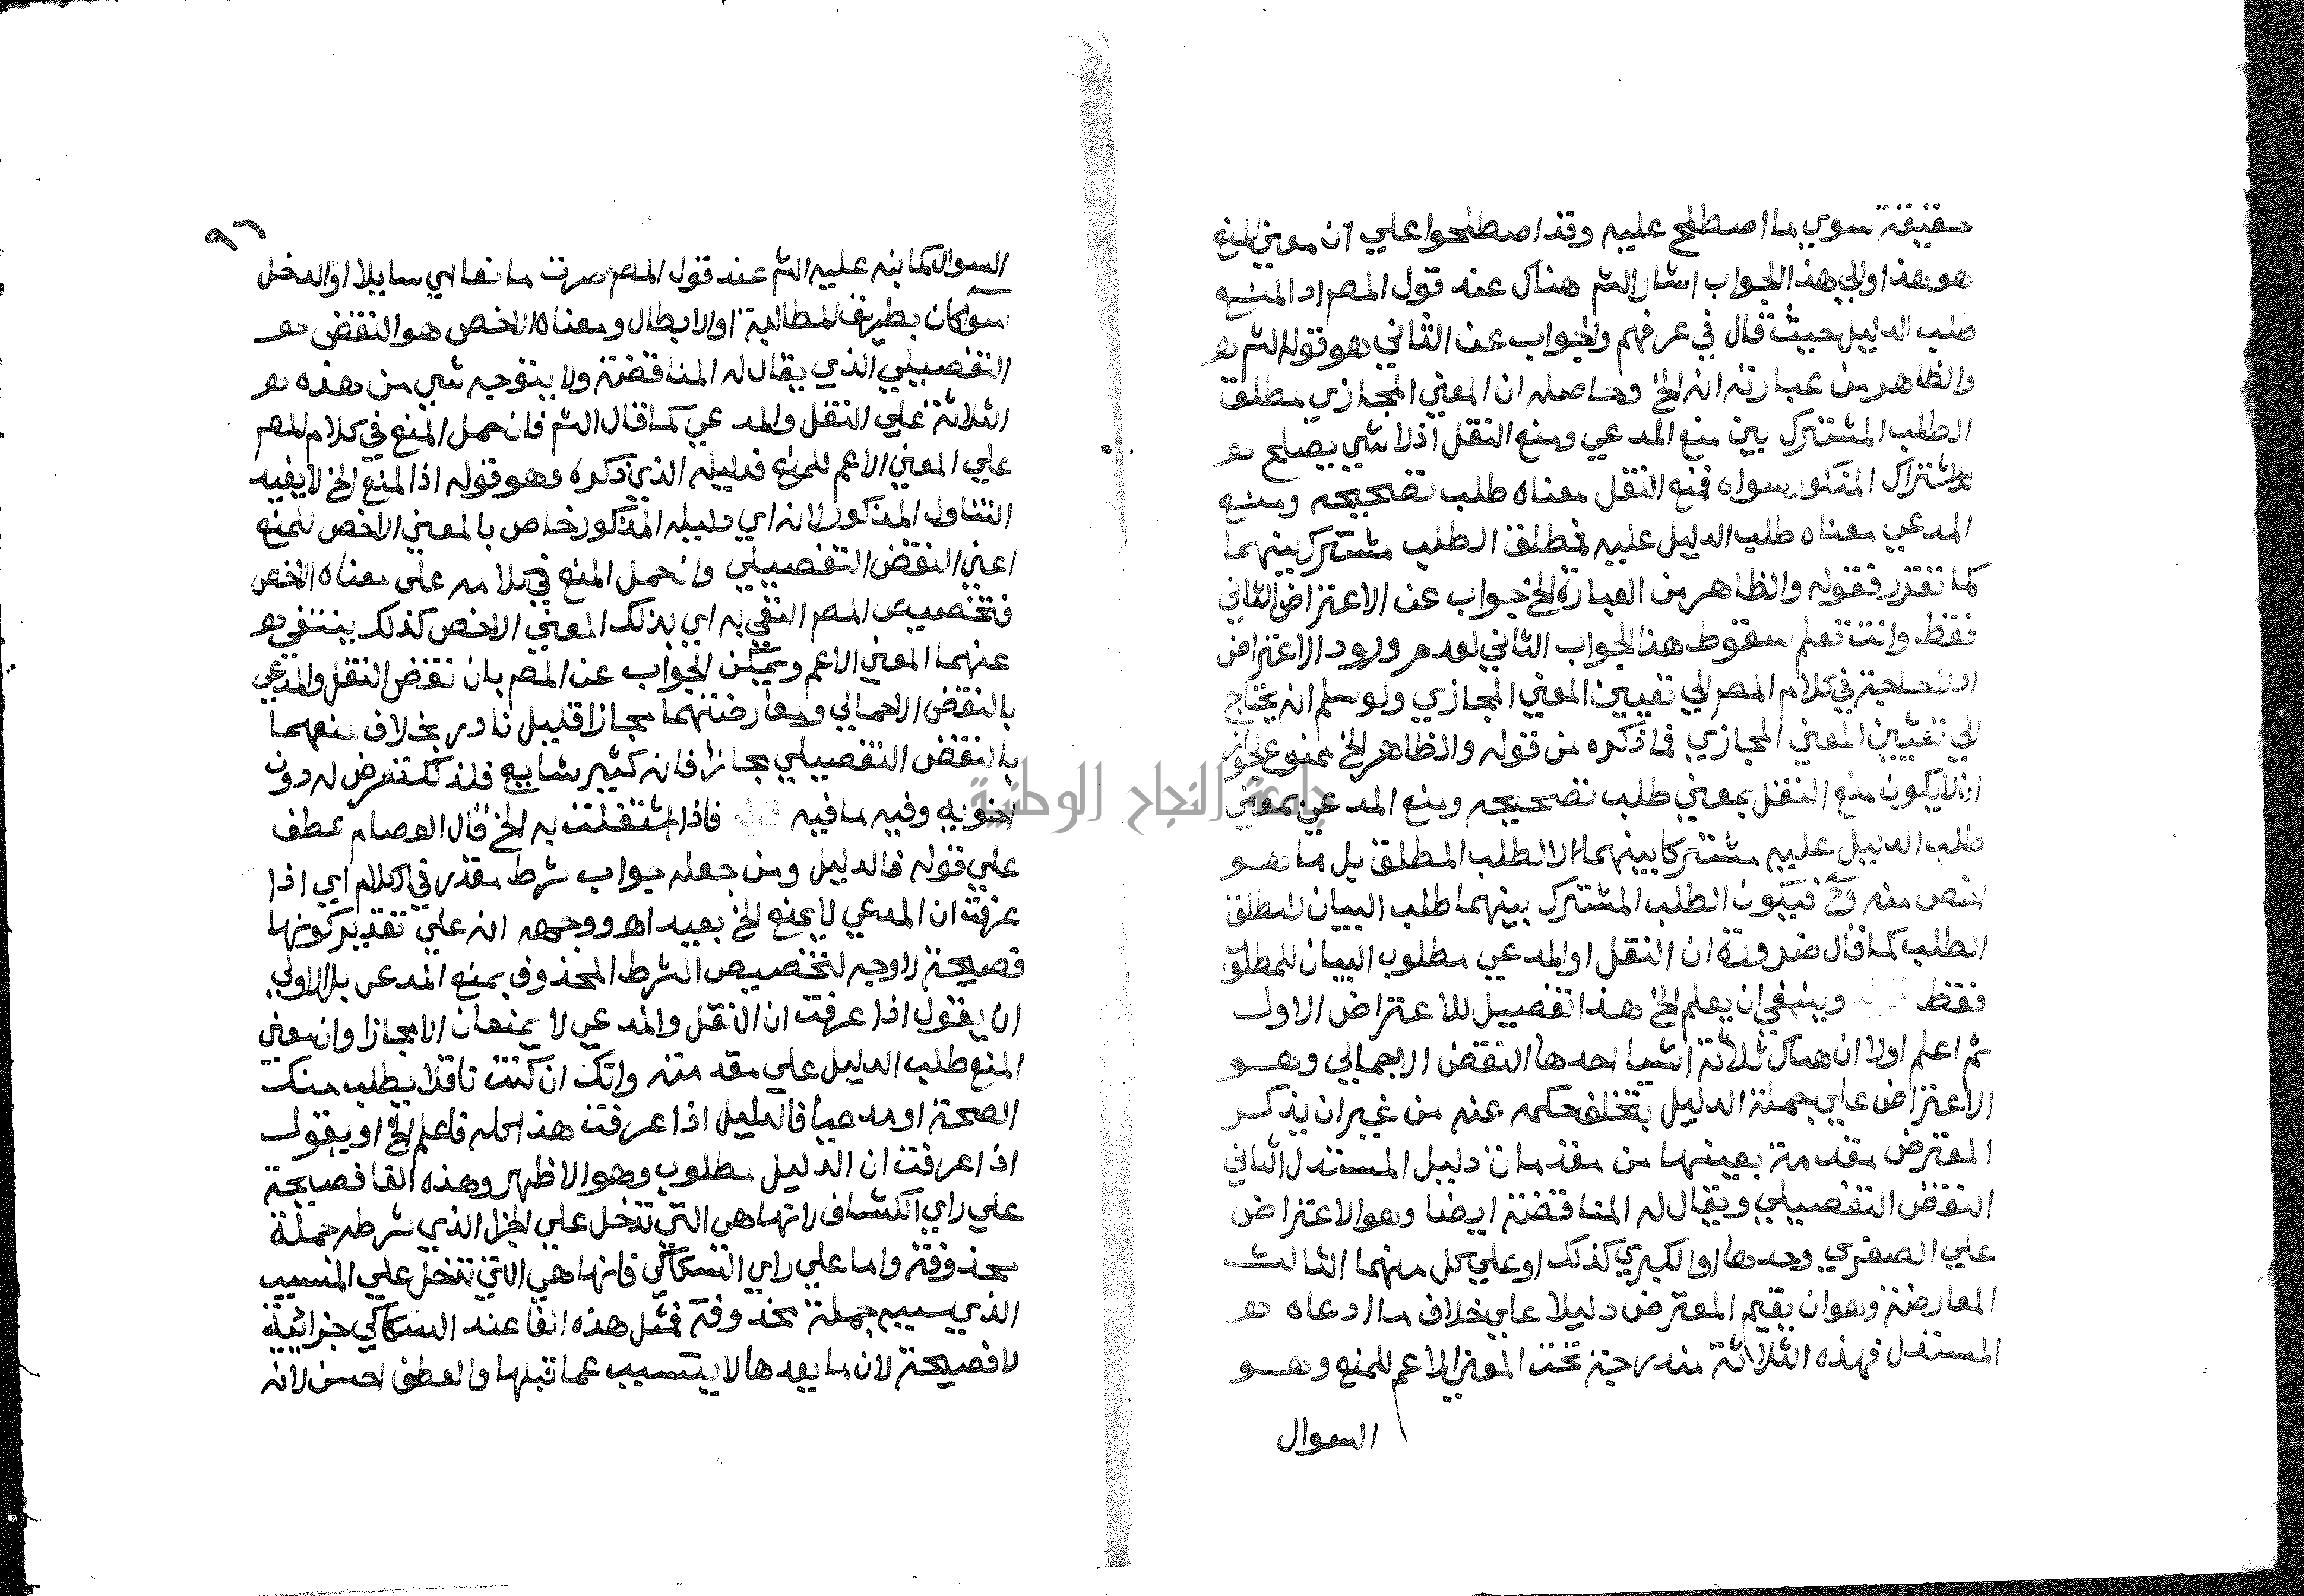 حقيقة سوي ما اصطلح عليه وقد اصطلحوا علي ان معني المنع
هو هذا والي هذا الجواب اشار الشم هناك عند قول المصراد المنع
طلب الدليل حيث قال في عرفهم والجواب عن الثاني هو قوله الشم
والظاهر من عبارته انه الخ وحاصله ان المعني المجازي مطلق
الطلب المشترك بين منع المدعي ومنع النقل اذ لا شي يصلح
للاشتراك المذكور سواه فمنع النقل معناه طلب تصحيحه ومنع
المدعي معناه طلب الدليل عليه فمطلق الطلب مشترك بينهما
كما تقرر فقوله والظاهر من العبارة الخ جواب عن الاعتراض الثاني
فقط وانت تعلم سقوط هذا الجواب الثاني لعدم ورود الاعتراض
اذ لا حاجة في كلام المصر الي تعيين المعني المجازي ولو سلم انه يحتاج
الي تعيين المعني المجازي فما ذكره من قوله والظاهر الخ ممنوع لجواز
ان لا يكون منع النقل بمعني طلب تصحيحه ومنع المدعي بمعني
طلب الدليل عليه مشتركا بينهما الا الطلب المطلق بل ما هو
اخص منه وح فيكون الطلب المشترك بينهما طلب البيان لا مطلق
الطلب كما قال ضرورة ان النقل او المدعي مطلوب البيان للمطلوب
فقط وينبغي ان يعلم الخ هذا تفصيل للاعتراض الاول
ثم اعلم اولا ان هناك ثلاثة اشيا احدها النقض الاجمالي وهو
الاعتراض علي جملة الدليل بتخلف حكمه عنه من غير ان يذكر
المعترض مقدمة بعينها من مقدمات دليل المستدل الثاني
النقض التفصيلي ويقال له المناقضة ايضا وهو الاعتراض
علي الصغري وحدها او الكبري كذلك او علي كل منهما الثالث
المعارضة وهو ان يقيم المعترض دليلا علي خلاف ما ادعاه
المستدل فهذه الثلاثة مندرجة تحت المعني الاعم للمنع وهو
السوال
٩٦
السوال كما نبه عليه الشم عند قول المصر صرت مانعا اي سايلا او الدخل
سوا كان بطريق المطالبة او الابطال ومعناه الاخص هو النقض
التفصيلي الذي يقال له المناقضة ولا يتوجه شي من هذه
الثلاثة علي النقل والمدعي كما قال الشم فان حمل المنع في كلام المصر
علي المعني الاعم للمنع فدليله الذي ذكره وهو قوله اذ المنع الخ لا يفيد
التناول المذكور لانه اي دليله المذكور خاص بالمعني الاخص للمنع
اعني النقض التفصيلي وان حمل المنع في كلامه علي معناه الاخص
فتخصيص المصر النفي به اي بذلك المعني الاخص كذلك ينتفي
عنهما المعني الاعم ويمكن الجواب عن المصر بان نقض النقل والمدعي
بالنقض الاجمالي ومعارضتهما مجازا قليل نادر بخلاف منعهما
بالنقض التفصيلي مجازا فانه كثير شايع فلذلك تعرض له دون
اخويه وفيه ما فيه فاذا اشتغلت به الخ قال العصام عطف
علي قوله فالدليل ومن جعله جواب شرط مقدر في الكلام اي اذا
عرفت ان المدعي لا يمنع الخ بعيد اهـ ووجهه انه علي تقدير كونها
فصيحة لا وجه لتخصيص الشرط المحذوف بمنع المدعي بل الاولي
ان يقول اذا عرفت ان النقل والمدعي لا يمنعان الا مجازا وان معني
المنع طلب الدليل علي مقدمته وانك ان كنت ناقلا يطلب منك
الصحة او مدعيا فالدليل اذا عرفت هذا كله فاعلم الخ او يقول
اذا عرفت ان الدليل مطلوب وهو الاظهر وهذه الفا فصيحة
علي راي الكشاف لانها هي التي تدخل علي الجزا الذي شرطه جملة
محذوفة واما علي راي السكاكي فانها هي التي تدخل علي المسبب
الذي سببه جملة محذوفة فمثل هذه الفا عند السكاكي جزائية
لا فصيحة لان ما بعدها لا يتسبب عما قبلها والعطف احسن لانه
جامعة النجاح الوطنية